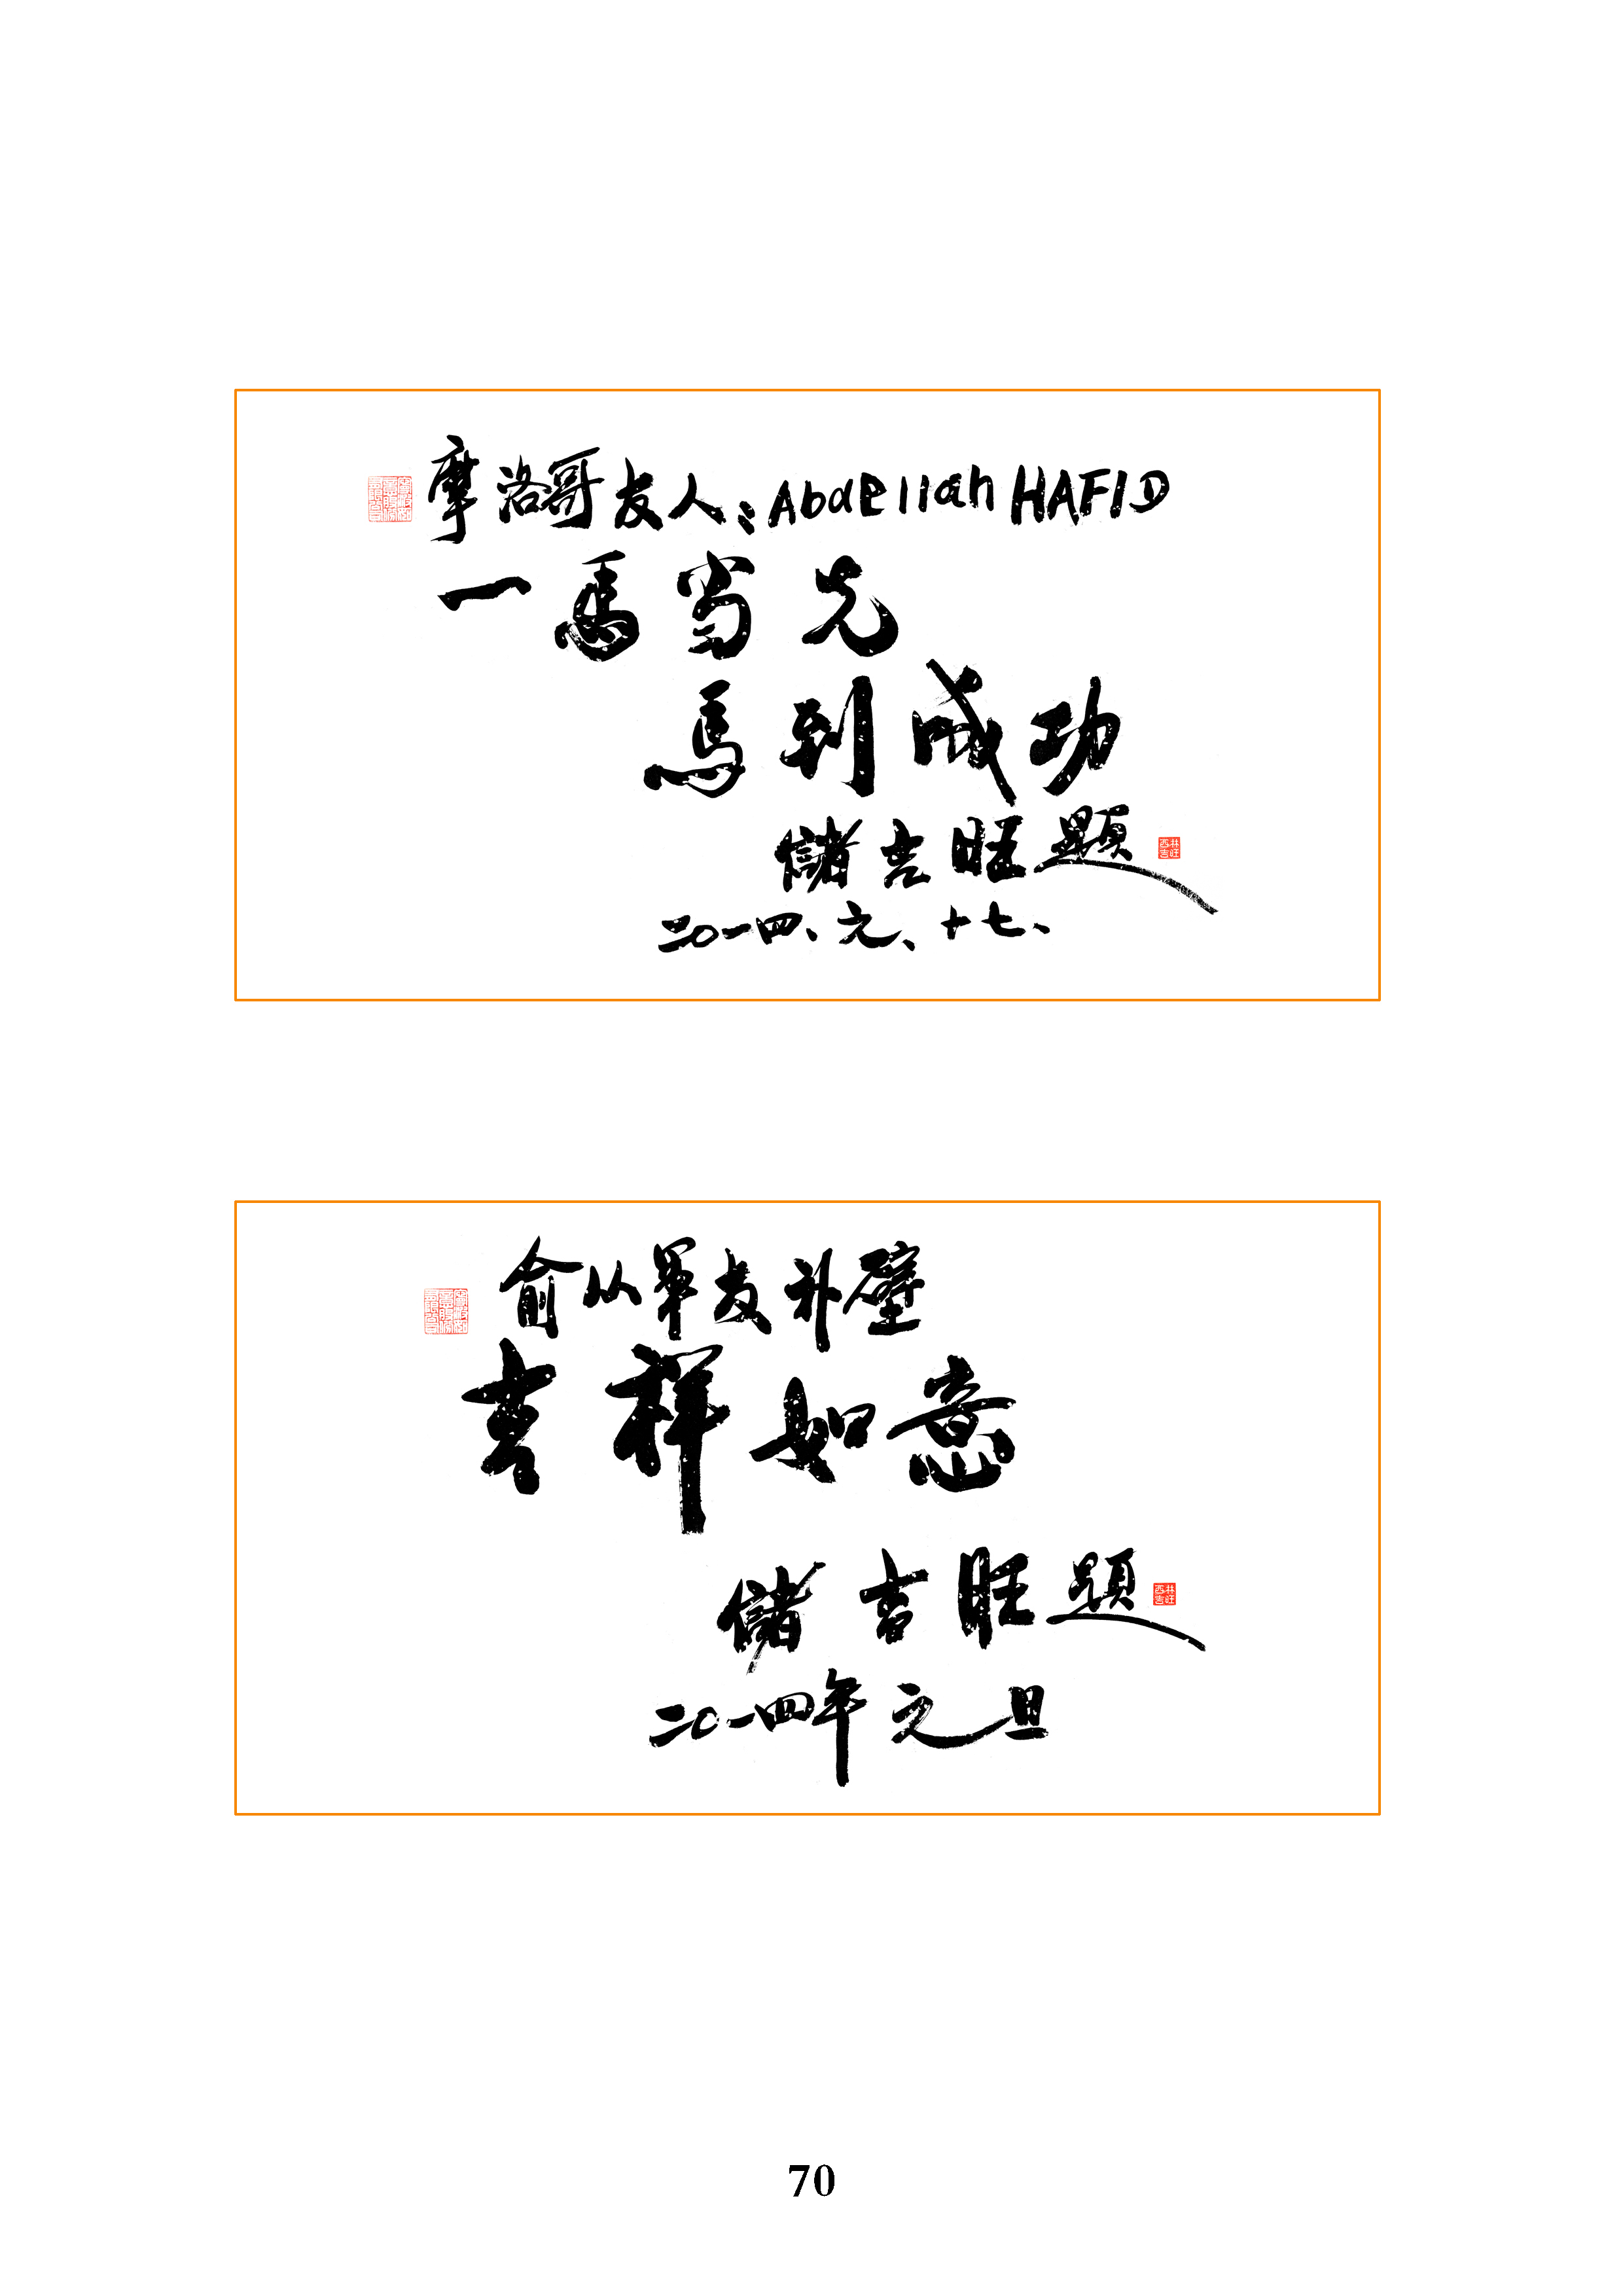 摩洛哥友人：Abdellah HAFID
一馬当先
馬到成功
儲吉旺题
二〇一四、元、十七、
俞从军友补壁
吉祥如意
儲吉旺题
二〇一四年元旦
70